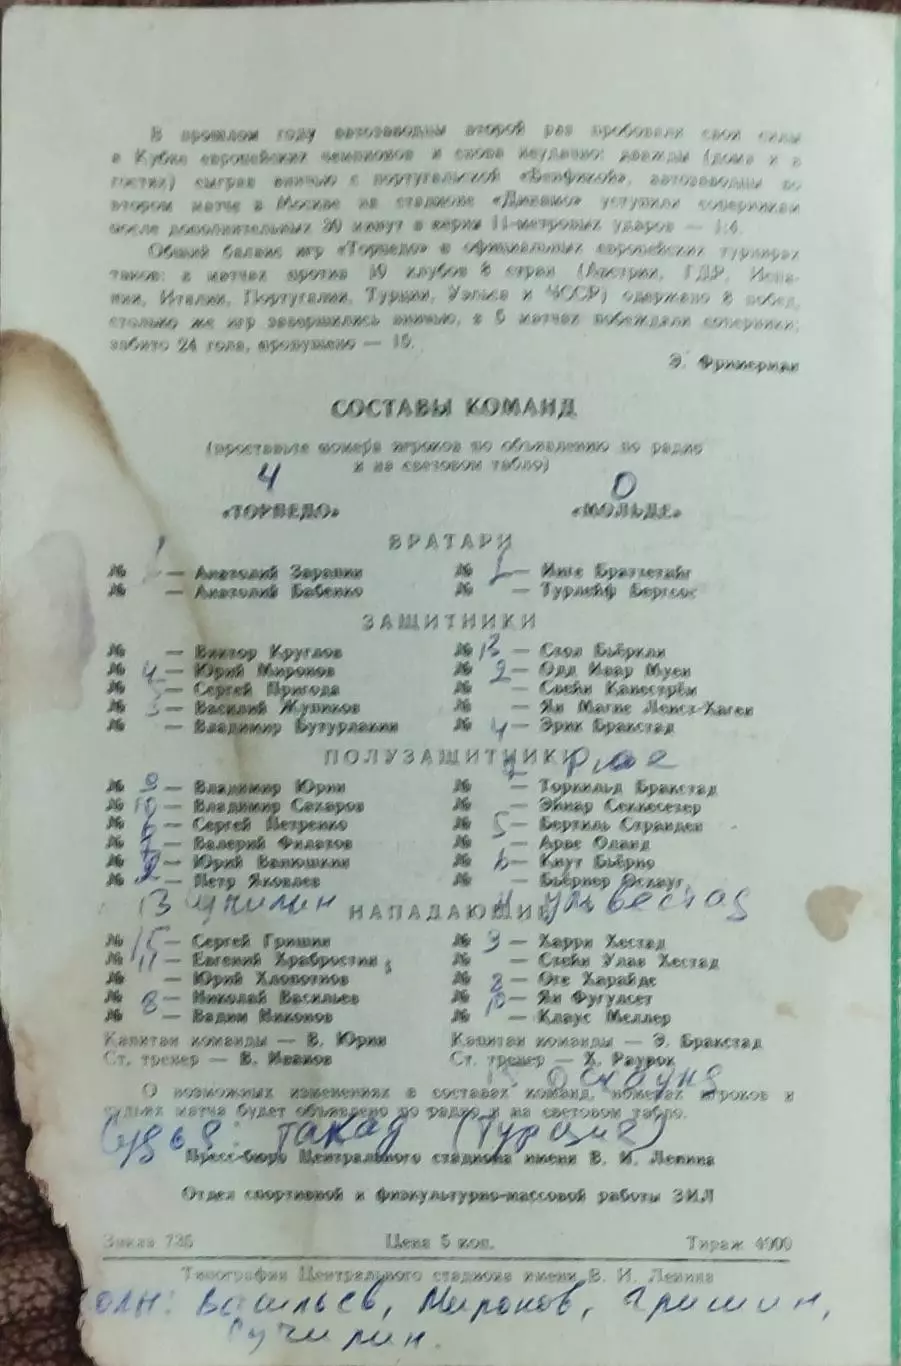 В прошлом году автозаводцы второй раз пробовали свои силы
в Кубке европейских чемпионов и снова неудачно: дважды (дома и в
гостях) сыграв вничью с португальской «Бенфикой», автозаводцы во
втором матче в Москве на стадионе «Динамо» уступили соперникам
после дополнительных 30 минут в серии 11-метровых ударов — 1:4.
Общий баланс игр «Торпедо» в официальных европейских турнирах
таков: в матчах против 10 клубов 8 стран (Австрии, ГДР, Испа-
нии, Италии, Португалии, Турции, Уэльса и ЧССР) одержано 8 побед,
столько же игр завершились вничью, в 5 матчах побеждали соперники;
забито 24 гола, пропущено — 15.
Э. Фримерман
СОСТАВЫ КОМАНД
(проставьте номера игроков по объявлению по радио
и на световом табло)
4 0
«ТОРПЕДО» «МОЛЬДЕ»
ВРАТАРИ
№ 1 — Анатолий Зарапин № 1 — Инге Браттетайг
№ — Анатолий Бабенко № — Турлейф Бергсос
ЗАЩИТНИКИ
№ — Виктор Круглов № 13 — Стол Бьёркли
№ 4 — Юрий Миронов № 2 — Одд Ивар Муен
№ 5 — Сергей Пригода № — Свейн Канестрём
№ 3 — Василий Жупиков № — Ян Магне Ленсэ-Хаген
№ — Владимир Бутурлакин № 4 — Эрик Бракстад
ПОЛУЗАЩИТНИКИ
№ 9 — Владимир Юрин № — Торкильд Бракстад
№ 10 — Владимир Сахаров № — Эйнар Секкесетер
№ 6 — Сергей Петренко № 5 — Бертиль Странден
№ 7 — Валерий Филатов № — Арве Оланд
№ 2 — Юрий Ванюшкин № 6 — Кнут Бьёрно
№ — Петр Яковлев № — Бьёрнер Эскауг
13 Училин 11 Ульвестад
НАПАДАЮЩИЕ
№ 15 — Сергей Гришин № 3 — Харри Хестад
№ 11 — Евгений Храбростин № — Стейн Улав Хестад
№ — Юрий Хлопотнов № 8 — Оге Харайде
№ 8 — Николай Васильев № 10 — Ян Фуглсет
№ — Вадим Никонов № — Клаус Меллер
Капитан команды — В. Юрин Капитан команды — Э. Бракстад
Ст. тренер — В. Иванов Ст. тренер — Х. Раурок
О возможных изменениях в составах команд, номерах игроков и
судьях матча будет объявлено по радио и на световом табло.
Судья: Такад (Турция)
Пресс-бюро Центрального стадиона имени В. И. Ленина
Отдел спортивной и физкультурно-массовой работы ЗИЛ
Заказ 735 Цена 5 коп. Тираж 4900
Типография Центрального стадиона имени В. И. Ленина
олы: Васильев, Миронов, Гришин,
Сучилин.